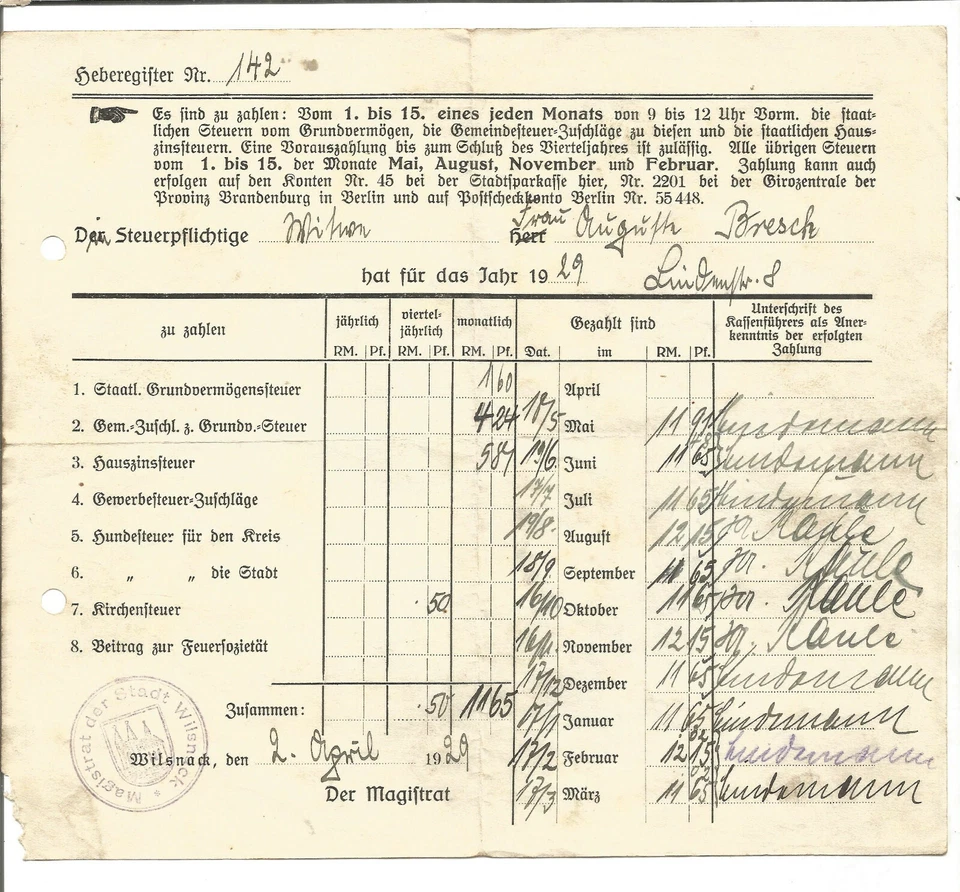 Heberegister Nr. 142
Es sind zu zahlen: Vom 1. bis 15. eines jeden Monats von 9 bis 12 Uhr Vorm. die staat-
lichen Steuern vom Grundvermögen, die Gemeindesteuer-Zuschläge zu diesen und die staatlichen Haus-
zinssteuern. Eine Vorauszahlung bis zum Schluß des Vierteljahres ist zulässig. Alle übrigen Steuern
vom 1. bis 15. der Monate Mai, August, November und Februar. Zahlung kann auch
erfolgen auf den Konten Nr. 45 bei der Stadtsparkasse hier, Nr. 2201 bei der Girozentrale der
Provinz Brandenburg in Berlin und auf Postscheckkonto Berlin Nr. 55448.
Steuerpflichtige Witwe Frau Herr Auguste Bresch
hat für das Jahr 1929 Lindenstr. 8
zu zahlen jährlich viertel-jährlich monatlich Gezahlt sind Unterschrift des Kassenführers als Aner-kenntnis der erfolgten Zahlung
RM. Pf. RM. Pf. RM. Pf. Dat. im RM. Pf.
1. Staatl. Grundvermögenssteuer 1 60 April
2. Gem.-Zuschl. z. Grundv.-Steuer 4 24 18/5 Mai 11 Lindemann
3. Hauszinssteuer 5 81 19/6 Juni 11 65 Lindemann
4. Gewerbesteuer-Zuschläge 17/7 Juli 11 65 Lindemann
5. Hundesteuer für den Kreis 19/8 August 12 15 Kaule
6. „ „ die Stadt 18/9 September 11 65 Kaule
7. Kirchensteuer 50 16/10 Oktober 11 65 Kaule
8. Beitrag zur Feuersozietät 16/11 November 12 15 Kaule
17/12 Dezember 11 65 Lindemann
Zusammen: 50 11 65 Januar 11 65 Lindemann
Wilsnack, den 2. April 1929 17/2 Februar 12 15 Lindemann
Der Magistrat 17/3 März 11 65 Lindemann
Magistrat der Stadt Wilsnack